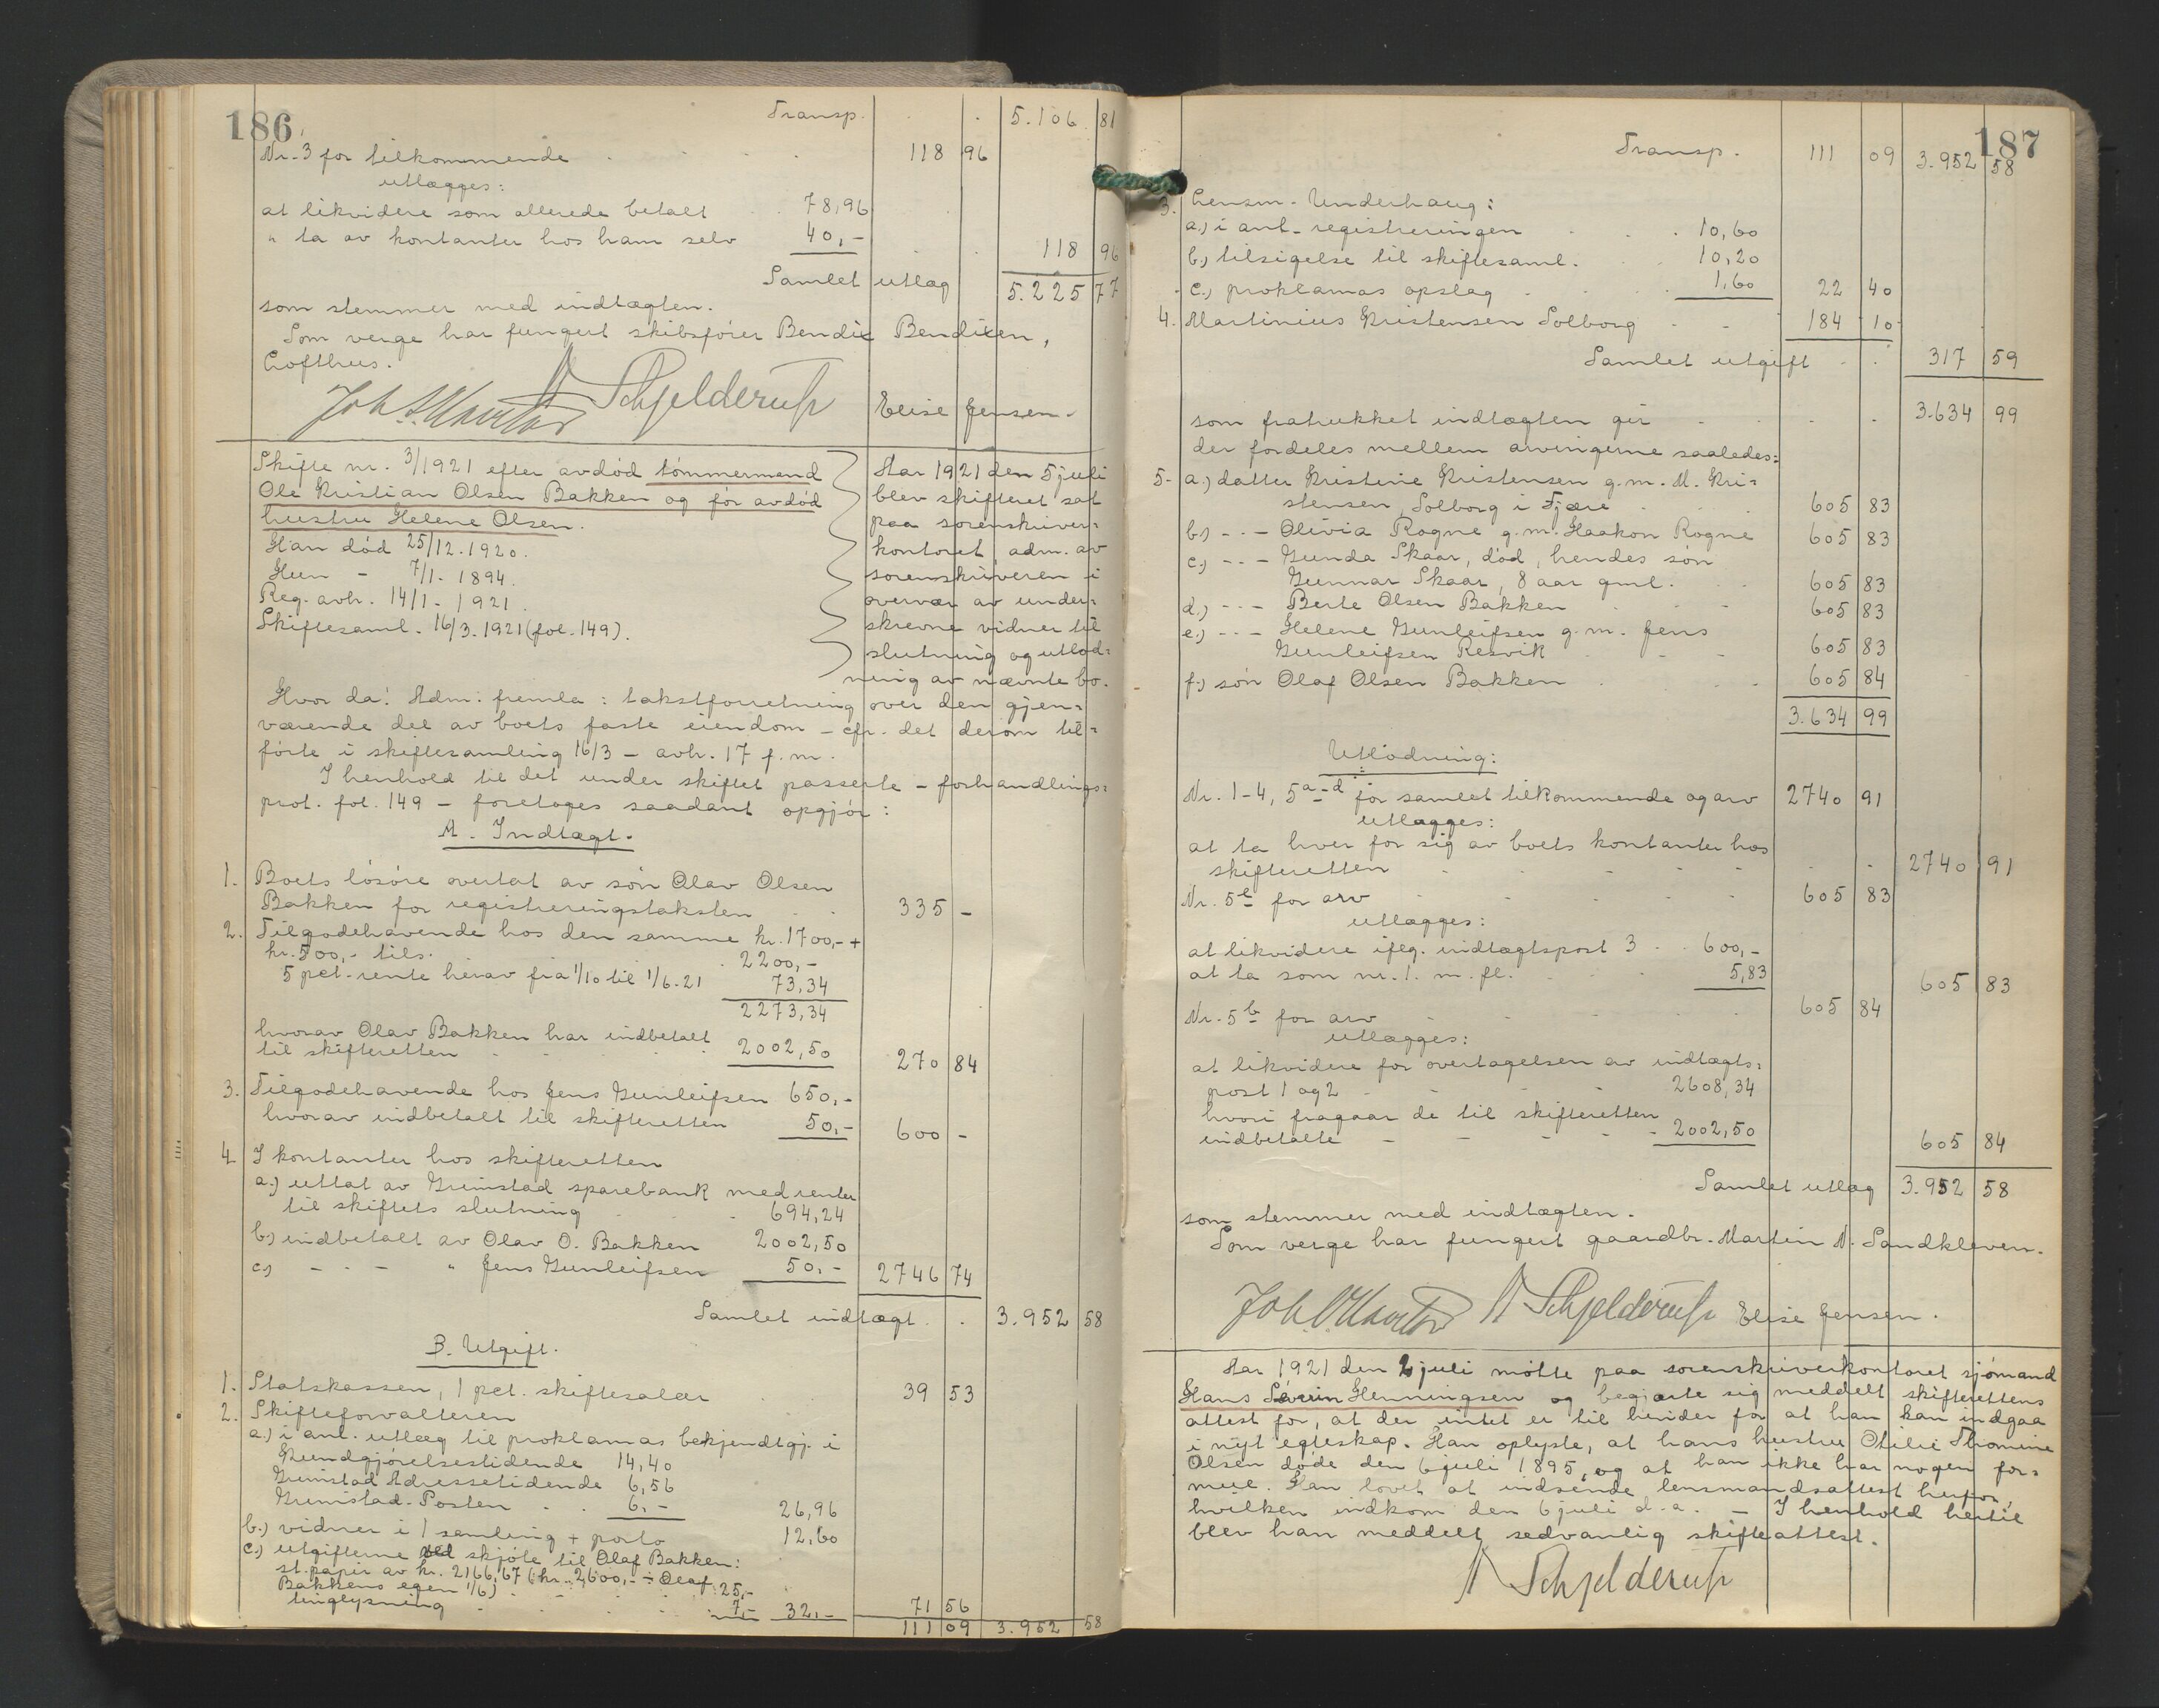 186
Transp. 5.106 81
Nr. 3 for tilkommende 118 96
utlægges:
at likvidere som allerede betalt 78,96
" ta av kontanter hos ham selv 40,- 118 96
Samlet utlæg 5.225 77
som stemmer med indtægten.
Som verge har fungert skibsfører Bendix Bendixen,
Lofthus.
Schjelderup Elise Jensen.
Skifte nr. 3/1921 efter avdød tømmermand
Ole Kristian Olsen Bakken og før avdød
hustru Helene Olsen.
Han død 25/12.1920.
Hun - 7/1. 1894.
Reg. avh. 14/1 - 1921.
Skiftesaml. 16/3.1921 (fol. 149).
Aar 1921 den 5 juli
blev skifteret sat
paa sorenskriver-
kontoret, adm. av
sorenskriveren i
overvær av under-
skrevne vidner til
slutning og utlod-
ning av nævnte bo.
Hvor da! Adm. fremla: takstforretning over den gjen-
værende del av boets faste eiendom - cfr. det derom til-
førte i skiftesamling 16/3 - avh. 17 f. m.
I henhold til det under skiftet passerte - forhandlings-
prot. fol. 149 - foretoges saadant opgjør:
A. Indtægt.
1. Boets løsøre overtat av søn Olav Olsen
Bakken for registreringstaksten 335 -
2. Tilgodehavende hos den samme kr. 1700,- +
kr. 500,- tils. 2200,-
5 pct. rente herav fra 1/10 til 1/6-21 73,34
2273,34
hvorav Olav Bakken har indbetalt
til skifteretten 2002,50 270 84
3. Tilgodehavende hos Jens Gunleifsen 650,-
hvorav indbetalt til skifteretten 50,- 600 -
4 I kontanter hos skifteretten
a.) uttat av Grimstad sparebank med renter
til skiftets slutning 694,24
b.) indbetalt av Olav O. Bakken 2002,50
c.) - - - " Jens Gunleifsen 50,- 2746 74
Samlet indtægt 3.952 58
B. Utgift.
1. Statskassen, 1 pct. skiftesalær 39 53
2. Skifteforvalteren
a.) i anl. utlæg til proklamas bekjendtgj. i
Kundgjørelsestidende 14,40
Grimstad Adressetidende 6,56
Grimstad-Posten 6,- 26,96
b.) vidner i 1 samling + porto 12,60
c.) utgifterne ved skjøte til Olaf Bakken:
st. papir av kr. 2166,67 (kr. 2600,- ÷ Olaf
Bakkens egen 1/6) 25,-
tinglysning 7,- 32,- 71 56
111 09 3.952 58
187
Transp. 111 09 3.952 58
3. Lensm. Underhaug:
a.) i anl. registreringen 10,60
b.) tilsigelse til skiftesaml. 10,20
c.) proklamas opslag 1,60 22 40
4. Martinius Kristensen Solborg 184 10
Samlet utgift 317 59
som fratrukket indtægten gir 3.634 99
der fordeles mellem arvingerne saaledes:
5. a.) datter Kristine Kristensen g. m. M. Kri-
stensen, Solborg i Fjære 605 83
b.) - - - Olivia Rogne g. m. Haakon Rogne 605 83
c.) - - - Gunda Skaar, død, hendes søn
Gunnar Skaar, 8 aar gml. 605 83
d.) - - - Berte Olsen Bakken 605 83
e.) - - - Helene Gunleifsen g. m. Jens
Gunleifsen Resvik 605 83
f.) søn Olaf Olsen Bakken 605 84
3.634 99
Utlodning:
Nr. 1-4, 5 a-d for samlet tilkommende og arv 2740 91
utlægges:
at ta hver for sig av boets kontanter hos
skifteretten 2740 91
Nr. 5 e for arv 605 83
utlægges:
at likvidere ifølg. indtægtspost 3 600,-
at ta som nr. 1. m. fl. 5,83 605 83
Nr. 5 b for arv 605 84
utlægges:
at likvidere for overtagelsen av indtægts-
post 1 og 2 2608,34
hvori fragaar de til skifteretten
indbetalte 2002,50 605 84
Samlet utlæg 3.952 58
som stemmer med indtægten.
Som verge har fungert gaardbr. Martin N. Sandkleven.
Schjelderup Elise Jensen.
Aar 1921 den 2 juli møtte paa sorenskriverkontoret sjømand
Hans Severin Henningsen og begjærte sig meddelt skifterettens
attest for, at der intet er til hinder for at han kan indgaa
i nyt egteskap. Han oplyste, at hans hustru Otilie Thomine
Olsen døde den 6 juli 1895, og at han ikke har nogen for-
mue. Han lovet at indsende lensmandsattest herfor,
hvilken indkom den 6 juli d. a. - I henhold hertil
blev han meddelt sedvanlig skifteattest.
Schjelderup